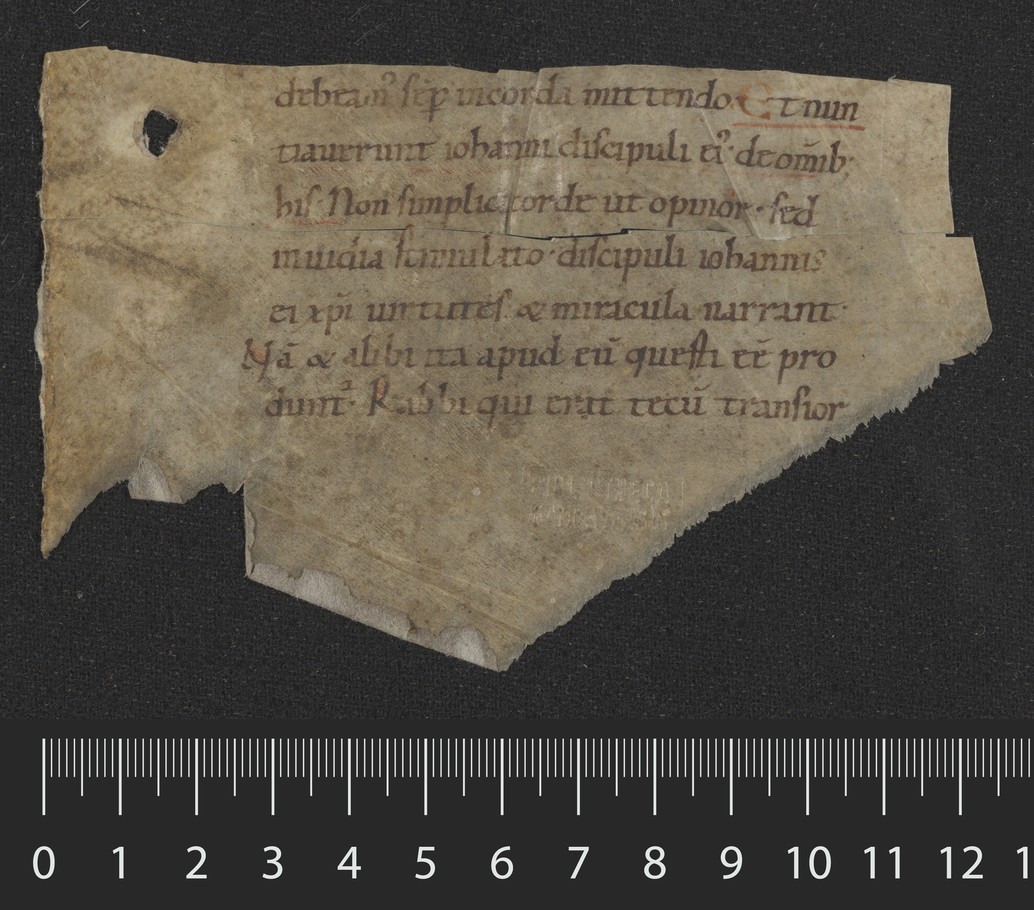 debeam᷒ sēp in corda mittendo. Et nun
tiauerunt iohanni discipuli ei᷒ de om̄ib;
his. Non simplici corde ut opinor. sed
inuidia stimulato. discipuli iohannis
ei xp̄i uirtutes. & miracula narrant.
Nā & alibi ita apud eū questi eē pro
dunt͛. Rabbi qui erat tecū transior
0 1 2 3 4 5 6 7 8 9 10 11 12 1